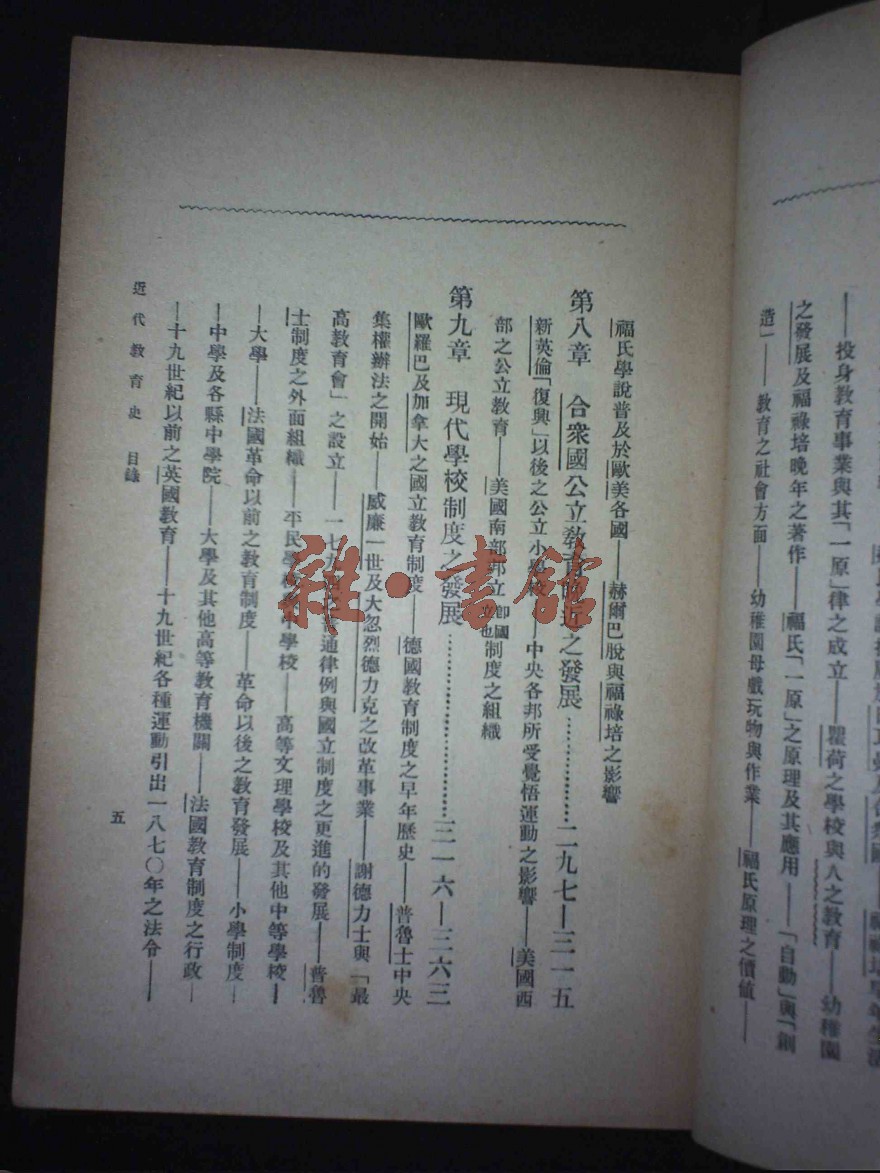 ——投身教育事業與其「一原」律之成立——瞿荷之學校與人之教育——幼稚園
之發展及福祿培晚年之著作——福氏「一原」之原理及其應用——「自動」與「創
造」——教育之社會方面——幼稚園母戲玩物與作業——福氏原理之價値——
福氏學說普及於歐美各國——赫爾巴脫與福祿培之影響
第八章 合衆國公立教育晚近之發展…………二九七—三一五
新英倫「復興」以後之公立小學校——中央各邦所受覺悟運動之影響——美國西
部之公立教育——美國南部邦立 卽國立也 制度之組織
第九章 現代學校制度之發展…………三一六—三六三
歐羅巴及加拿大之國立教育制度——德國教育制度之早年歷史——普魯士中央
集權辦法之開始——威廉一世及大忽烈德力克之改革事業——謝德力士與「最
高教育會」之設立——一七九 通律例與國立制度之更進的發展——普魯
士制度之外面組織——平民學校 中學校——高等文理學校及其他中等學校—
—大學——法國革命以前之教育制度——革命以後之教育發展——小學制度—
—中學及各縣中學院——大學及其他高等教育機關——法國教育制度之行政—
—十九世紀以前之英國教育——十九世紀各種運動引出一八七〇年之法令——
近代教育史 目錄
五
雜·書館